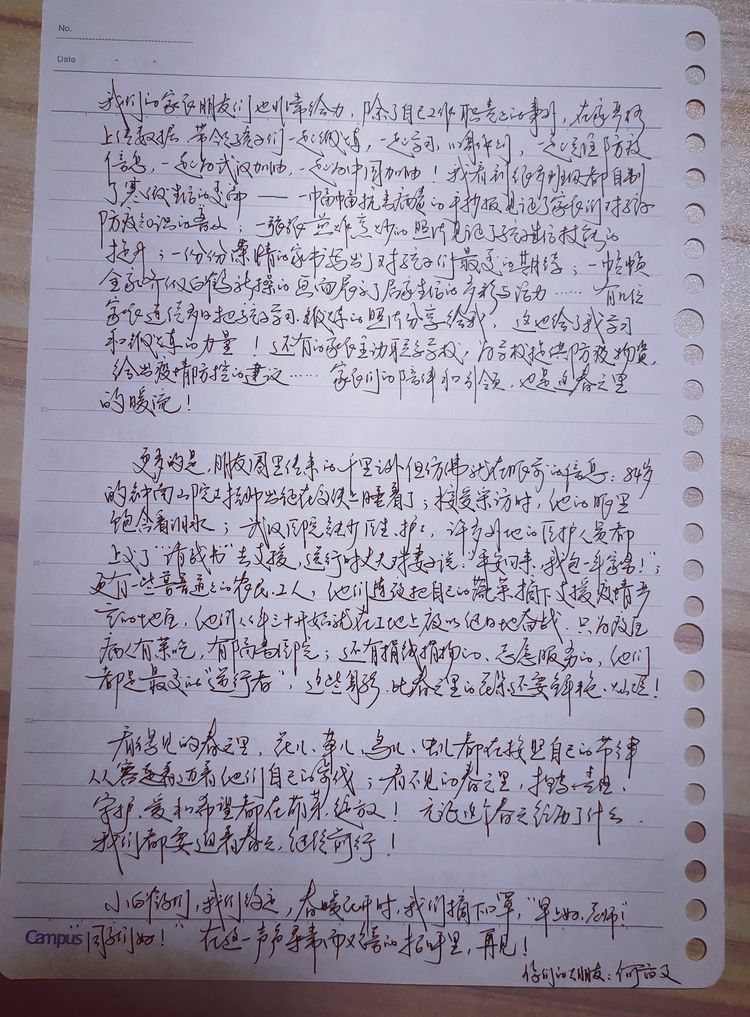 No.
Date
我们的家长朋友们也非常给力，除了自己工作职责上的事外，在家
上传数据，带领孩子们一起锻炼，一起学习，一起关注防疫
信息，一起为武汉加油，一起为中国加油！我看到很多班级都自制
了寒假生活的美篇——一幅幅抗击病毒的手抄报见证了家长们对孩子
防疫知识的普及；一张张煎炸烹炒的照片见证了孩子生活技能的
提升；一份份深情的家书写出了对孩子们最美的期待；一帧帧
全家齐做白鹤抗操的画面展示了居家生活的多彩与活力……有几位
家长连续多日把孩子学习、锻炼的照片分享给我，这也给了我学习
和锻炼的力量！还有的家长主动联系学校，为学校提供防疫物资，
给出疫情防控的建议……家长们的陪伴和引领，也是这春天里
的暖流！
更多的是，朋友圈里传来的千里之外但仿佛就在眼前的信息：84岁
的钟南山院士挂帅出征在高铁上睡着了；接受采访时，他的眼里
饱含着泪水；武汉医院缺少医生、护士，许多外地的医护人员都
上交了“请战书”去支援，送行时丈夫对妻子说：“平安回来，我包一年家务！”；
更有一些普普通通的农民、工人，他们连夜把自己的蔬菜摘下支援疫情严
重的地区，他们从年三十开始就在工地上夜以继日地奋战，只为疫区
病人有菜吃，有隔离医院；还有捐钱捐物的、志愿服务的，他们
都是最美的“逆行者”，这些身影，比春天里的花朵还要鲜艳、灿烂！
看得见的春天里，花儿、草儿、鸟儿、虫儿都在按照自己的节律
从容地过着他们自己的节氏；看不见的春天里，拥抱、
守护、爱和希望都在萌芽、绽放！无论这个春天经历了什么，
我们都要迎着春天，继续前行！
小白鹤们，我们约定，春暖花开时，我们摘下口罩，“早上好，老师！”
Campus “同学们好！”在这一声声寻常而又美的招呼里，再见！
你们的大朋友：何